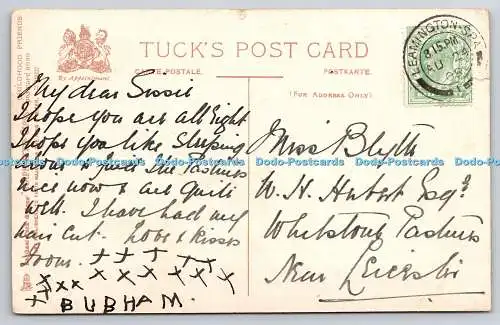 TUCK'S POST CARD
By Appointment
CARTE POSTALE.
POSTKARTE.
(FOR ADDRESS ONLY)
LEAMINGTON-SPA
8.15 PM
My dear Susie
I hope you are all right
I hope you like sleeping
nice now & are quite
well. I have had my
hair cut. Love & kisses
From. + + + + +
x x x x x x x
+ x x x
+ BUBHAM.
Miss Blyth
W. H. Hubert Esqre
Whetstone Pastures
Near Leicester
Dodo-Postcards Dodo-Postcards Dodo-Postcards Dodo-Postcards Dodo-Postcards
CHILDHOOD FRIENDS